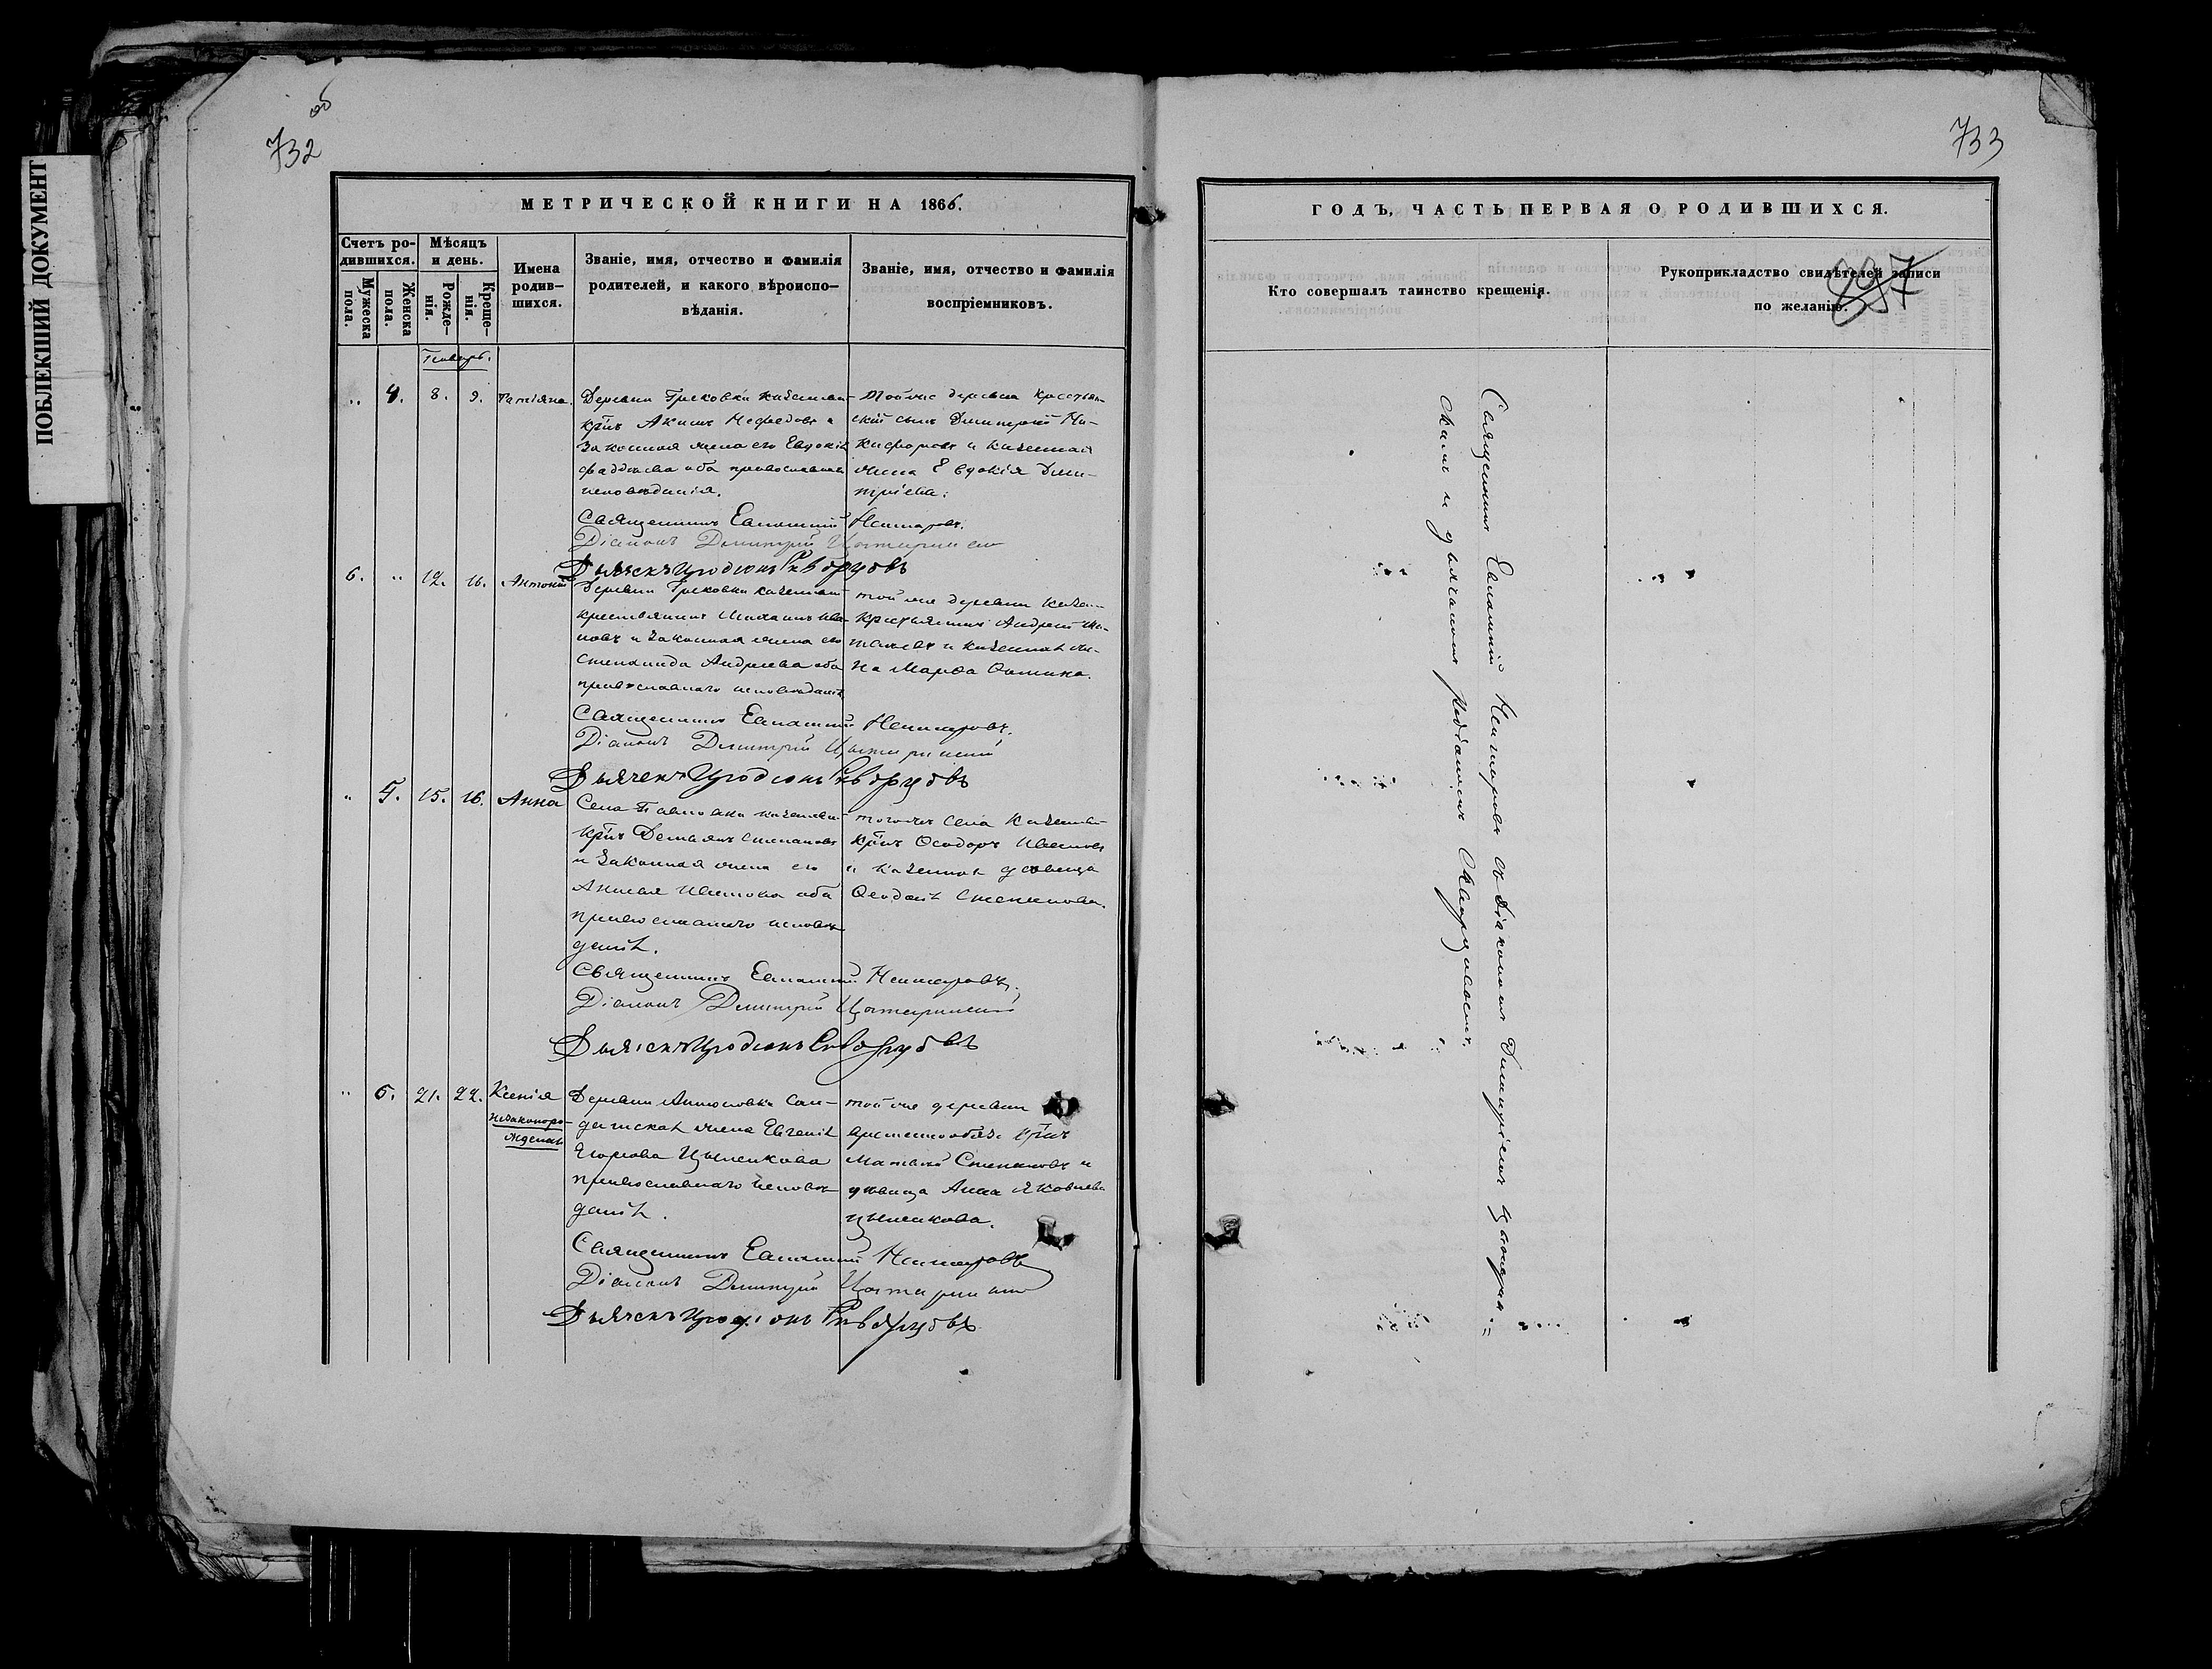 ПОБЛЕКШИЙ ДОКУМЕНТ
об
732
733
МЕТРИЧЕСКОЙ КНИГИ НА 1866.
Счетъ ро-
дившихся.
Мужеска
пола.
Женска
пола.
Мѣсяцъ
и день.
Рожде-
нія.
Креще-
нія.
Имена
родив-
шихся.
Званіе, имя, отчество и фамилія
родителей, и какого вѣроиспо-
вѣданія.
Званіе, имя, отчество и фамилія
воспріемниковъ.
Январь.
„ 4. 8. 9. Татіяна.
Деревни Грековки
крͅнъ Акимъ Нефедовъ и
законная жена его Евдокія
Фаддѣева оба православнаго
исповѣданія.
Той же деревни крестьян-
скій сынъ Димитрій Ни-
кифоровъ и казенная
жена Евдокія Дми-
тріева.
Священникъ Евлампій
Діаконъ Димитрій
Дьячекъ Иродіонъ Скворцовъ
6. „ 12. 16. Антоній
Деревни Грековки казенный
крестьянинъ Михаилъ Ива-
новъ и законная жена его
Степанида Андреева оба
православнаго исповѣданія
той же деревни казен-
крестьянинъ Андрей
и казенная же-
на Марѳа Ѳомина.
Священникъ Евлампій
Діаконъ Димитрій
Дьячекъ Иродіонъ Скворцовъ
„ 5. 15. 16. Анна
Села Павловки казенный
крнъ Демьянъ Степановъ
и законная жена его
Ивановна оба
православнаго исповѣ-
данія.
того же села казенный
крнъ Ѳеодоръ Ивановъ
и казенная дѣвица
Степанова.
Священникъ Евлампій
Діаконъ Димитрій
Дьячекъ Иродіонъ Скворцовъ
„ 6. 21. 22. Ксенія
незаконоро-
жденная
Деревни Антоновки сол-
датская жена Евгенія
Егорова
православнаго исповѣ-
данія.
той же деревни
временнообяз. крнъ
Матвѣй Степановъ и
дѣвица Анна Яковлева
Священникъ Евлампій
Діаконъ Димитрій
Дьячекъ Иродіонъ Скворцовъ
ГОДЪ, ЧАСТЬ ПЕРВАЯ О РОДИВШИХСЯ.
Кто совершалъ таинство крещенія.
Рукоприкладство свидѣтелей записи
по желанію.
Священникъ Евлампій съ діакономъ Димитріемъ
скимъ и дьячкомъ Иродіономъ Скворцовымъ.